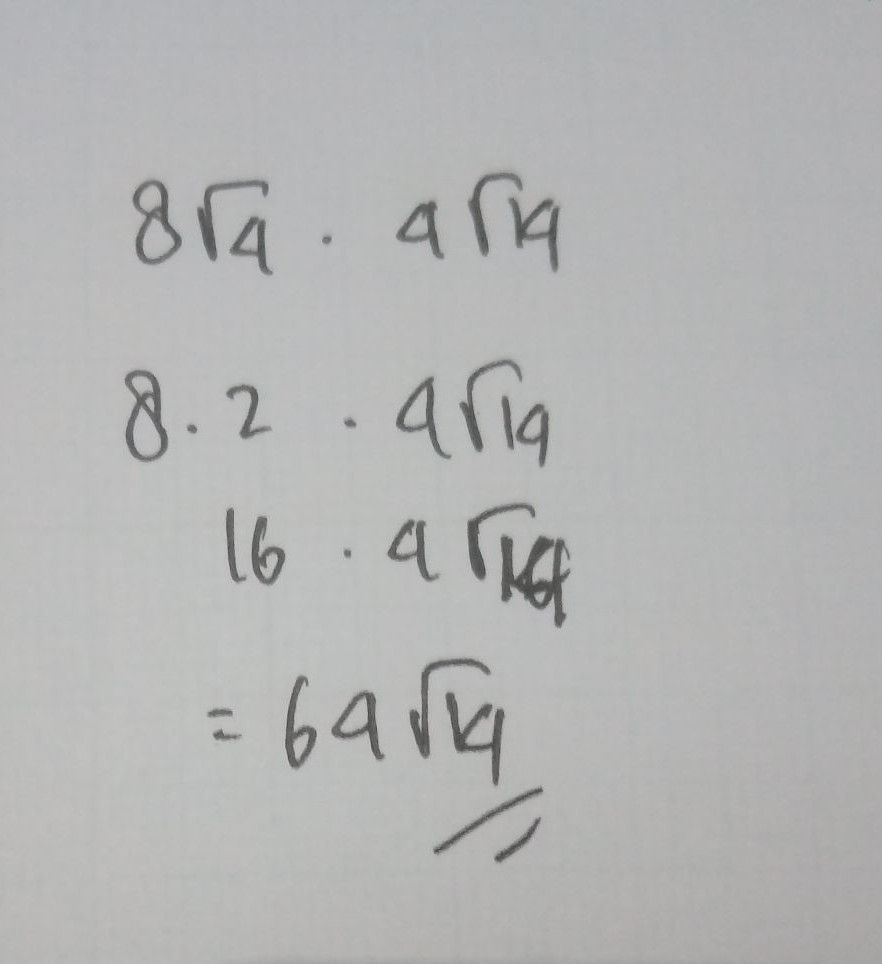 8√4 . 4√14
8 . 2 . 4√14
16 . 4√14
= 64√14